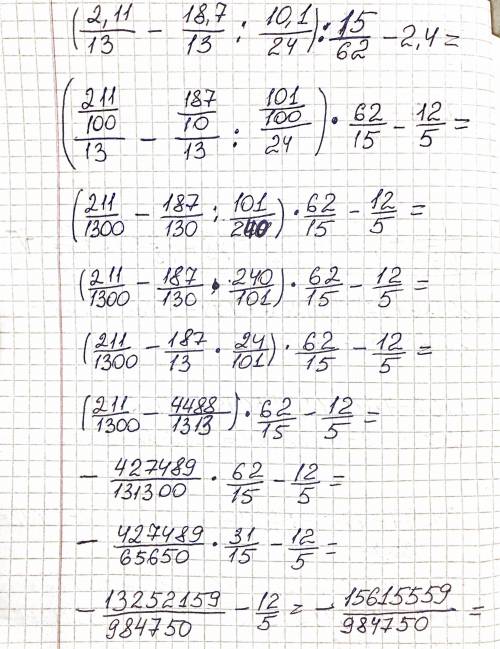 (2,11/13 − 18,7/13 : 10,1/24) : 15/62 − 2,4 =
((211/100)/13 − (187/10)/13 : (101/100)/24) · 62/15 − 12/5 =
(211/1300 − 187/130 : 101/240) · 62/15 − 12/5 =
(211/1300 − 187/130 · 240/101) · 62/15 − 12/5 =
(211/1300 − 187/13 · 24/101) · 62/15 − 12/5 =
(211/1300 − 4488/1313) · 62/15 − 12/5 =
− 427489/131300 · 62/15 − 12/5 =
− 427489/65650 · 31/15 − 12/5 =
− 13252159/984750 − 12/5 = − 15615559/984750 =